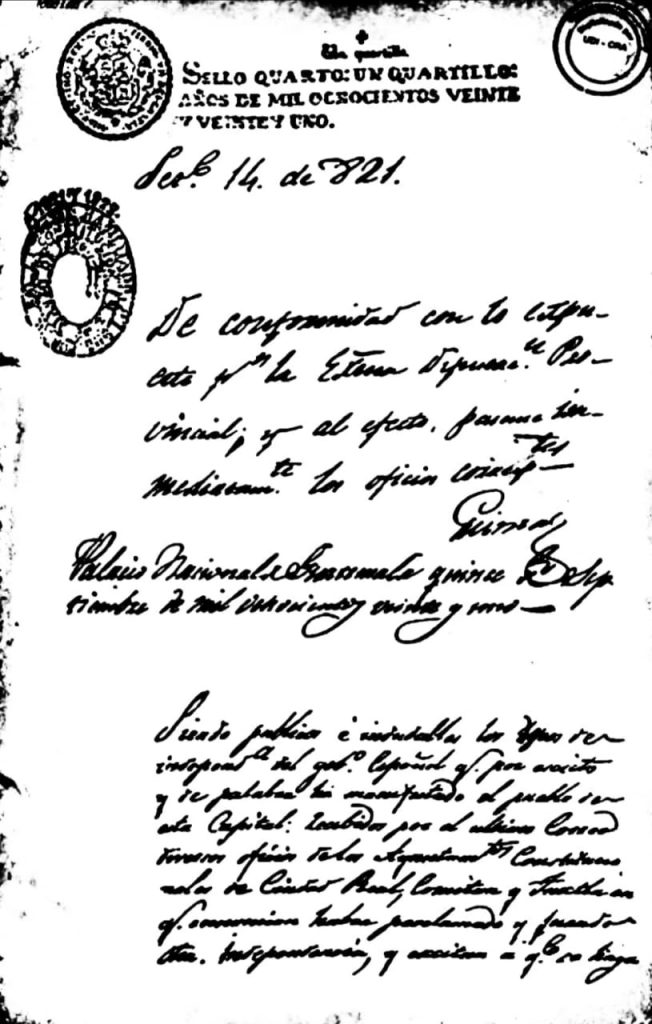 Un quartillo
SELLO QUARTO: UN QUARTILLO:
AÑOS DE MIL OCHOCIENTOS VEINTE
Y VEINTE Y UNO.
14. de 821.
De conformidad con lo expu-
esto pr la Exma Diputac.n Pro-
vincial; y al efecto, pasense in-
mediatam.te los oficios
Palacio Nacional de Guatemala quince de Sep
tiembre de mil ochocientos veinte y uno
Siendo publicos é indudables los deseos de
independ.cia del gob.o Español q.e por escrito
y de palabra ha manifestado el pueblo de
esta Capital: recibidos por el ultimo Correo
diversos oficios de los Ayuntam.tos Constitucio
nales de Ciudad Real, Comitan y Tuxtla en
q.e comunican haber proclamado y jurado
dha. Independencia, y excitan a q.e se haga